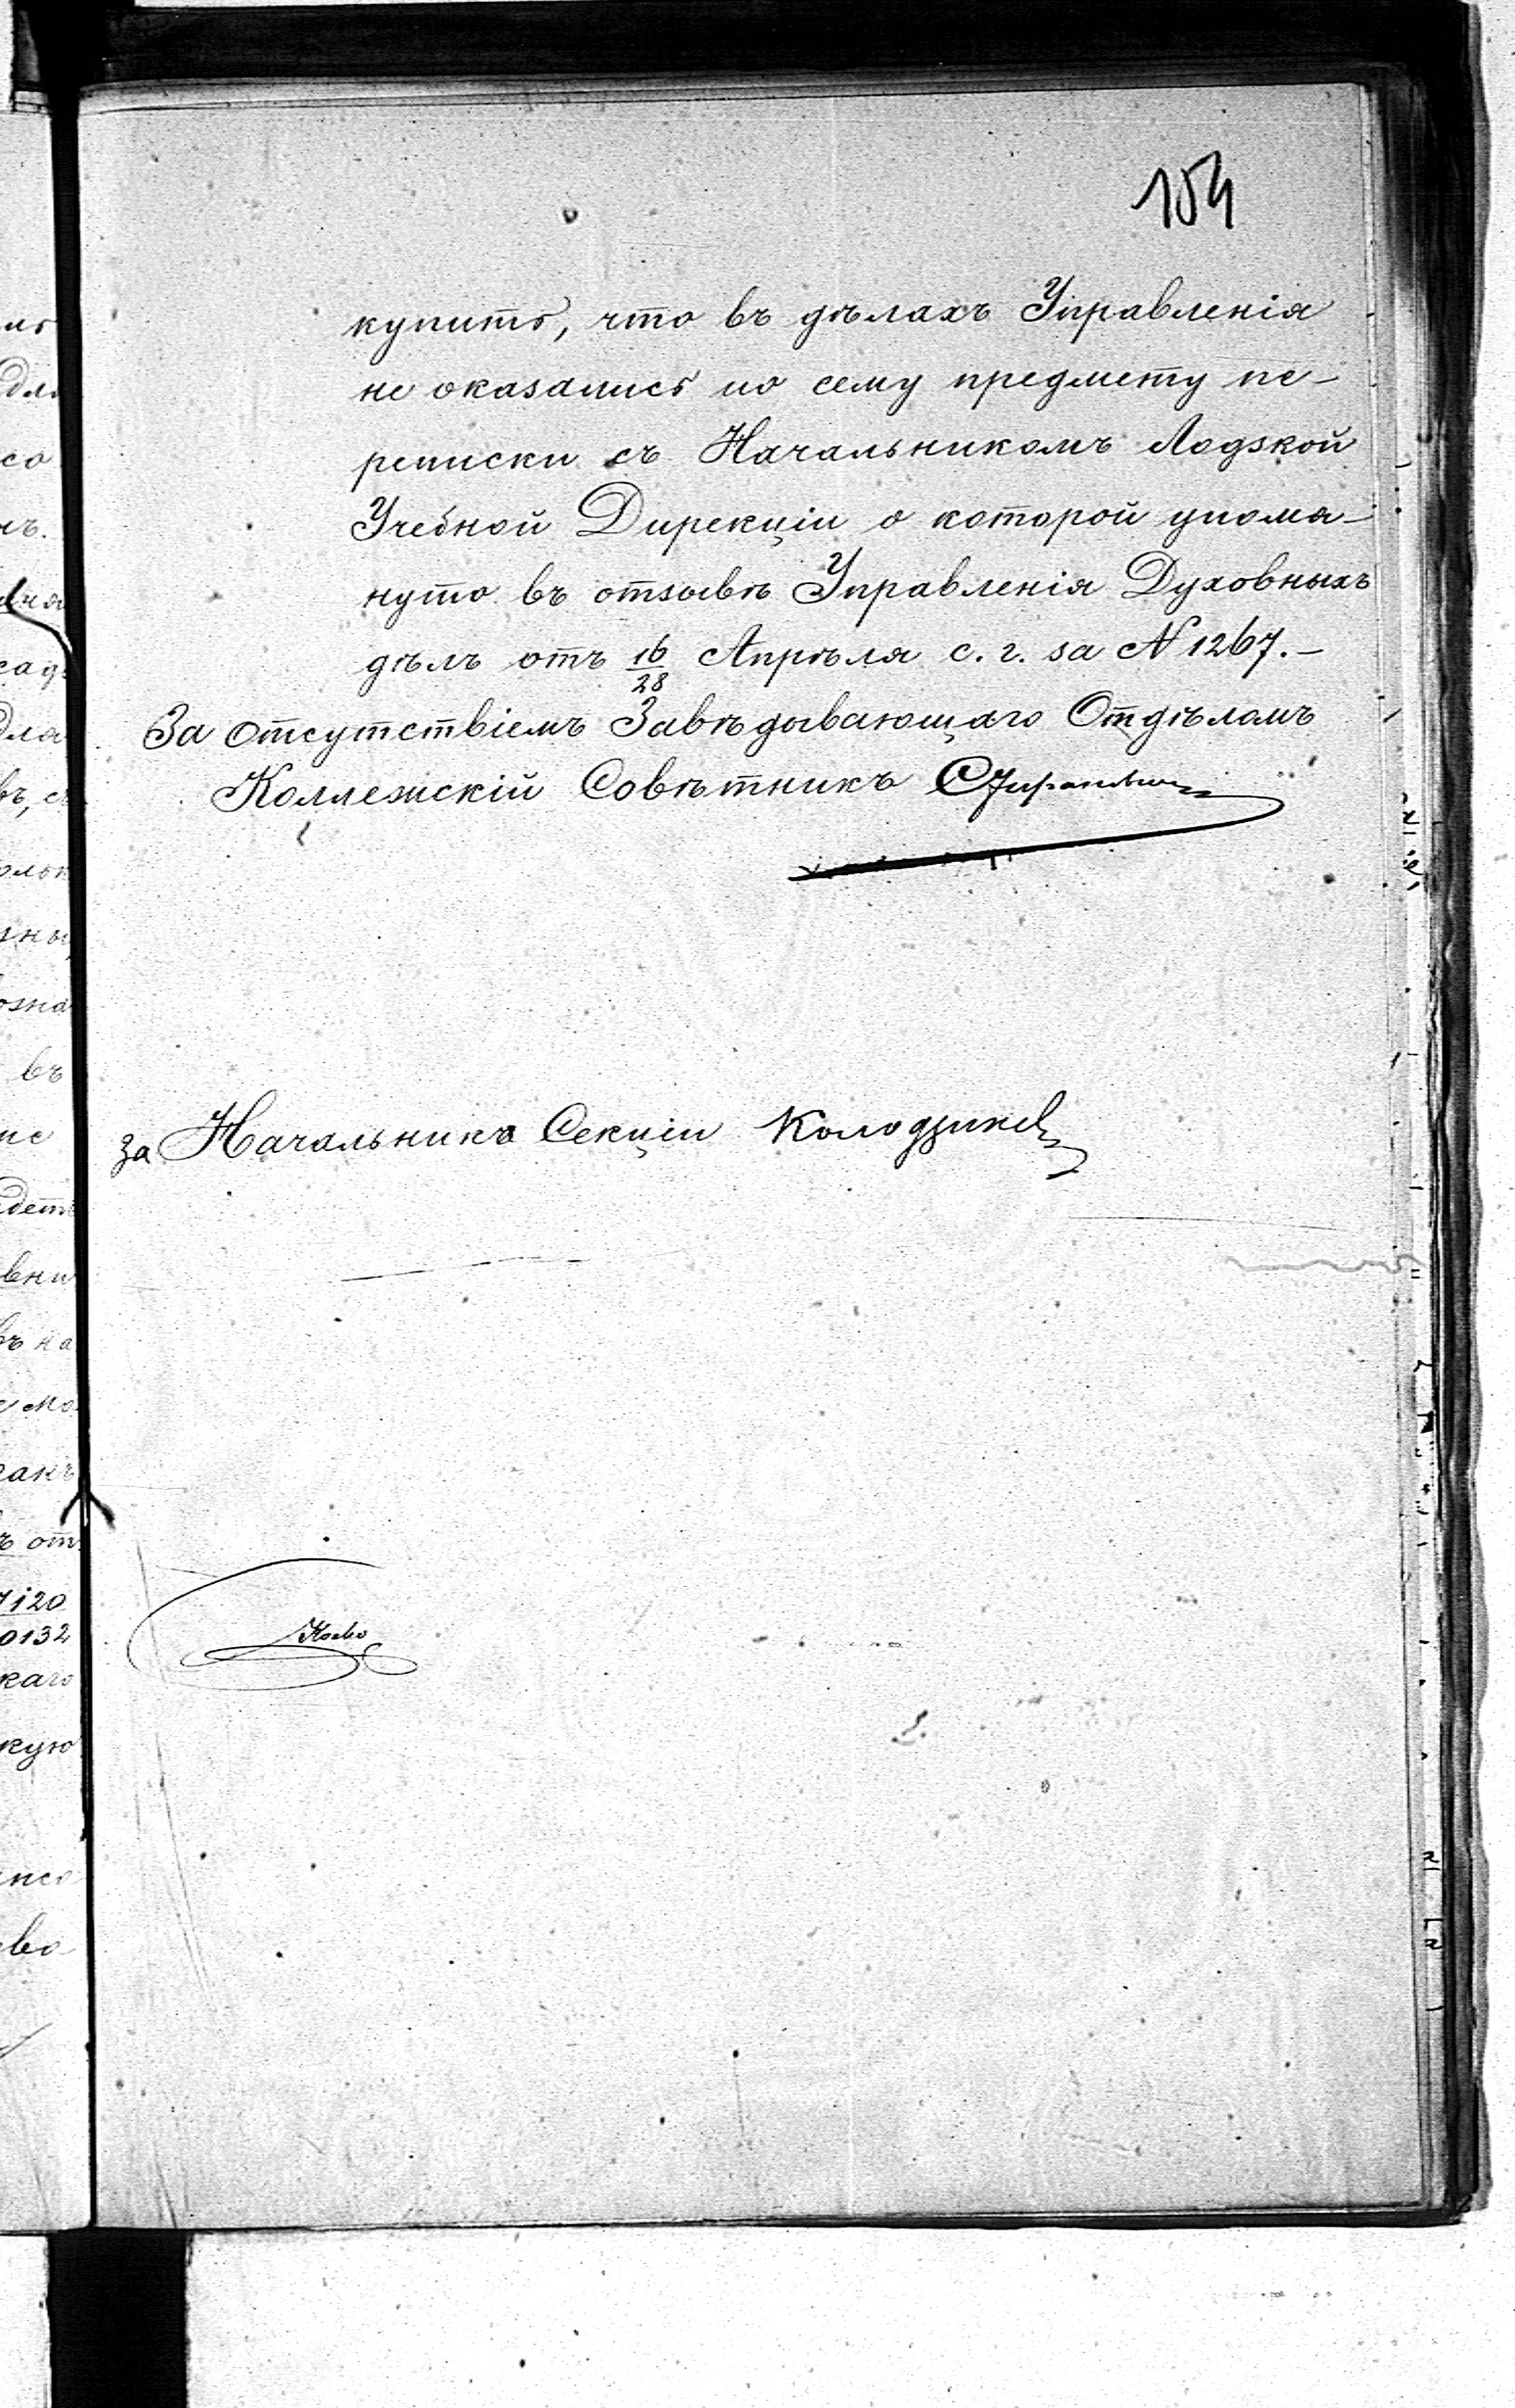 154
купить, что въ дѣлахъ Управленія
не оказались по сему предмету пе-
реписки съ Начальникомъ Лодзкой
Учебной Дирекціи о которой упомя-
нуто въ отзывѣ Управленія Духовныхъ
дѣлъ отъ 16/28 Апрѣля с. г. за N 1267.-
За отсутствіемъ Завѣдывающаго Отдѣломъ
Коллежскій Совѣтникъ
За Начальника Секціи